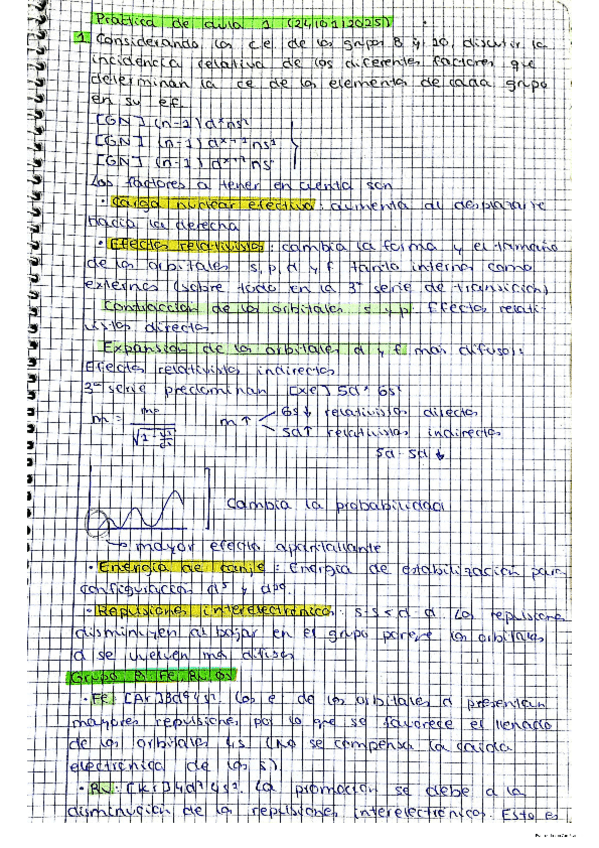 Práctica de aula 1 (24/01/2025)
1. Considerando las c.e. de los grupos 8 y 10, discutir la
incidencia relativa de los diferentes factores que
determinan la ce de los elementos de cada grupo
en su e.f.
[GN] (n-1)dˣns²
[GN] (n-1)dˣ⁺¹ns¹
[GN] (n-1)dˣ⁺²ns
Los factores a tener en cuenta son
· Carga nuclear efectiva: aumenta al desplazarse
hacia la derecha
· Efectos relativistas: cambia la forma y el tamaño
de los orbitales s, p, d y f tanto internos como
externos (sobre todo en la 3ª serie de transición)
Contracción de los orbitales s y p: Efectos relati-
vistas directos.
Expansión de los orbitales d y f más difusos:
Efectos relativistas indirectos
3ª serie predominan [Xe] 5d 6s
m = m₀ / √1-v²/c² m↑ 6s↓ relativistas directos
5d↑ relativistas indirectos
5d-5d↓
Cambia la probabilidad
→ mayor efecto apantallante
· Energía de canje: Energía de estabilización para
configuración d⁵ y d¹⁰.
· Repulsiones interelectrónicas: s-s<d-d Las repulsiones
disminuyen al bajar en el grupo porque los orbitales
d se vuelven más difusos
Grupo 8: Fe, Ru, Os
· Fe: [Ar]3d⁶4s². Los e⁻ de los orbitales d presentan
mayores repulsiones, por lo que se favorece el llenado
de los orbitales 4s (no se compensa la caída
electrónica de los s)
· Ru: [Kr]4d⁷ La promoción se debe a la
disminución de las repulsiones interelectrónicas. Esto es